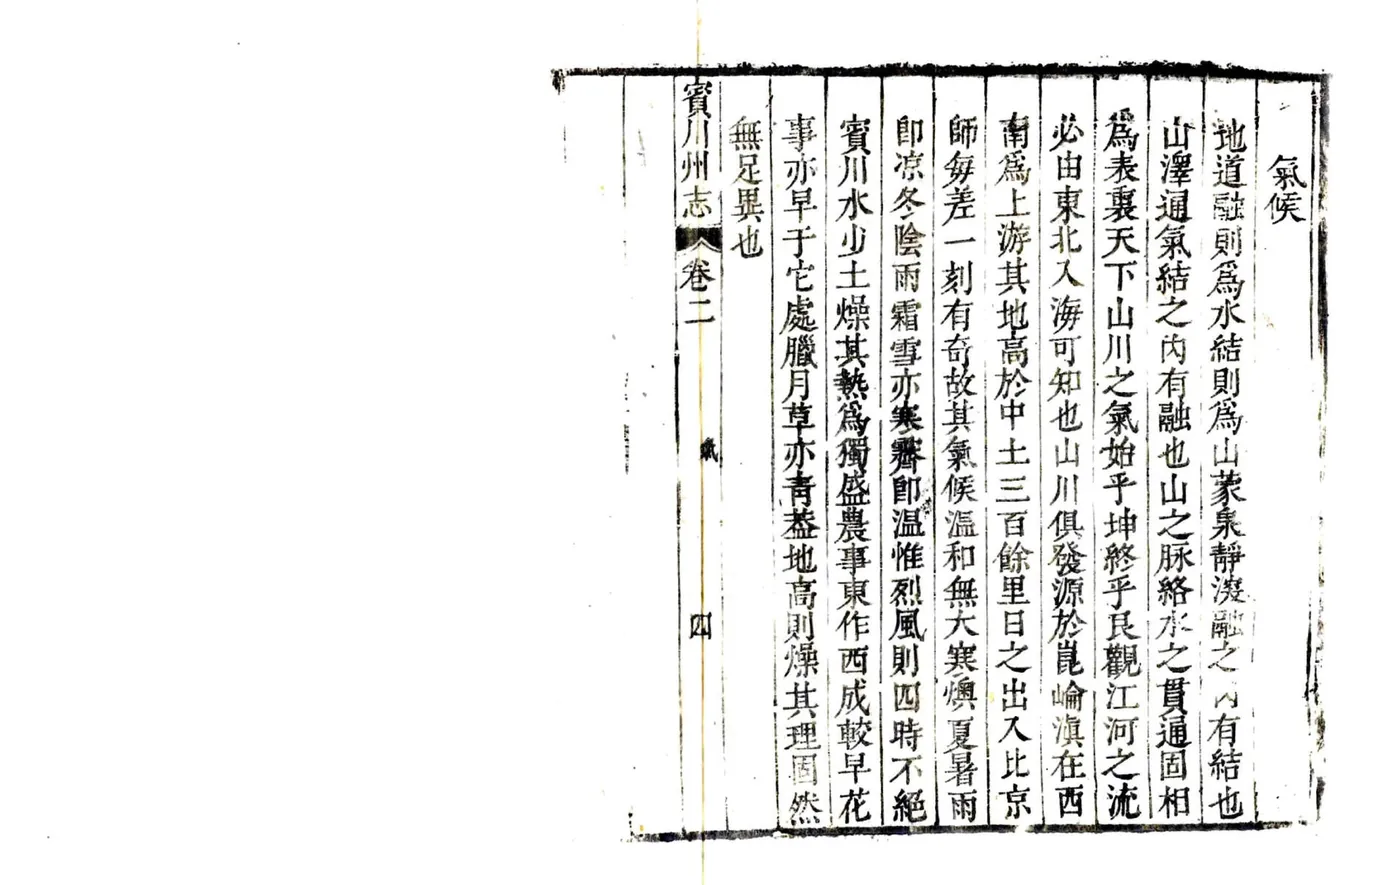 氣候
地道融則爲水結則爲山蒙泉靜深融之內有結也
山澤通氣結之內有融也山之脉絡水之貫通固相
爲表裏天下山川之氣始乎坤終乎艮觀江河之流
必由東北入海可知也山川俱發源於崑崙滇在西
南爲上游其地高於中土三百餘里日之出入比京
師每差一刻有奇故其氣候溫和無大寒燠夏暑雨
即凉冬陰雨霜雪亦寒霽即温惟烈風則四時不絕
賓川水少土燥其熱爲獨盛農事東作西成較早花
事亦早于它處臘月草亦青葢地高則燥其理固然
無足異也
賓川州志 卷二 氣 四